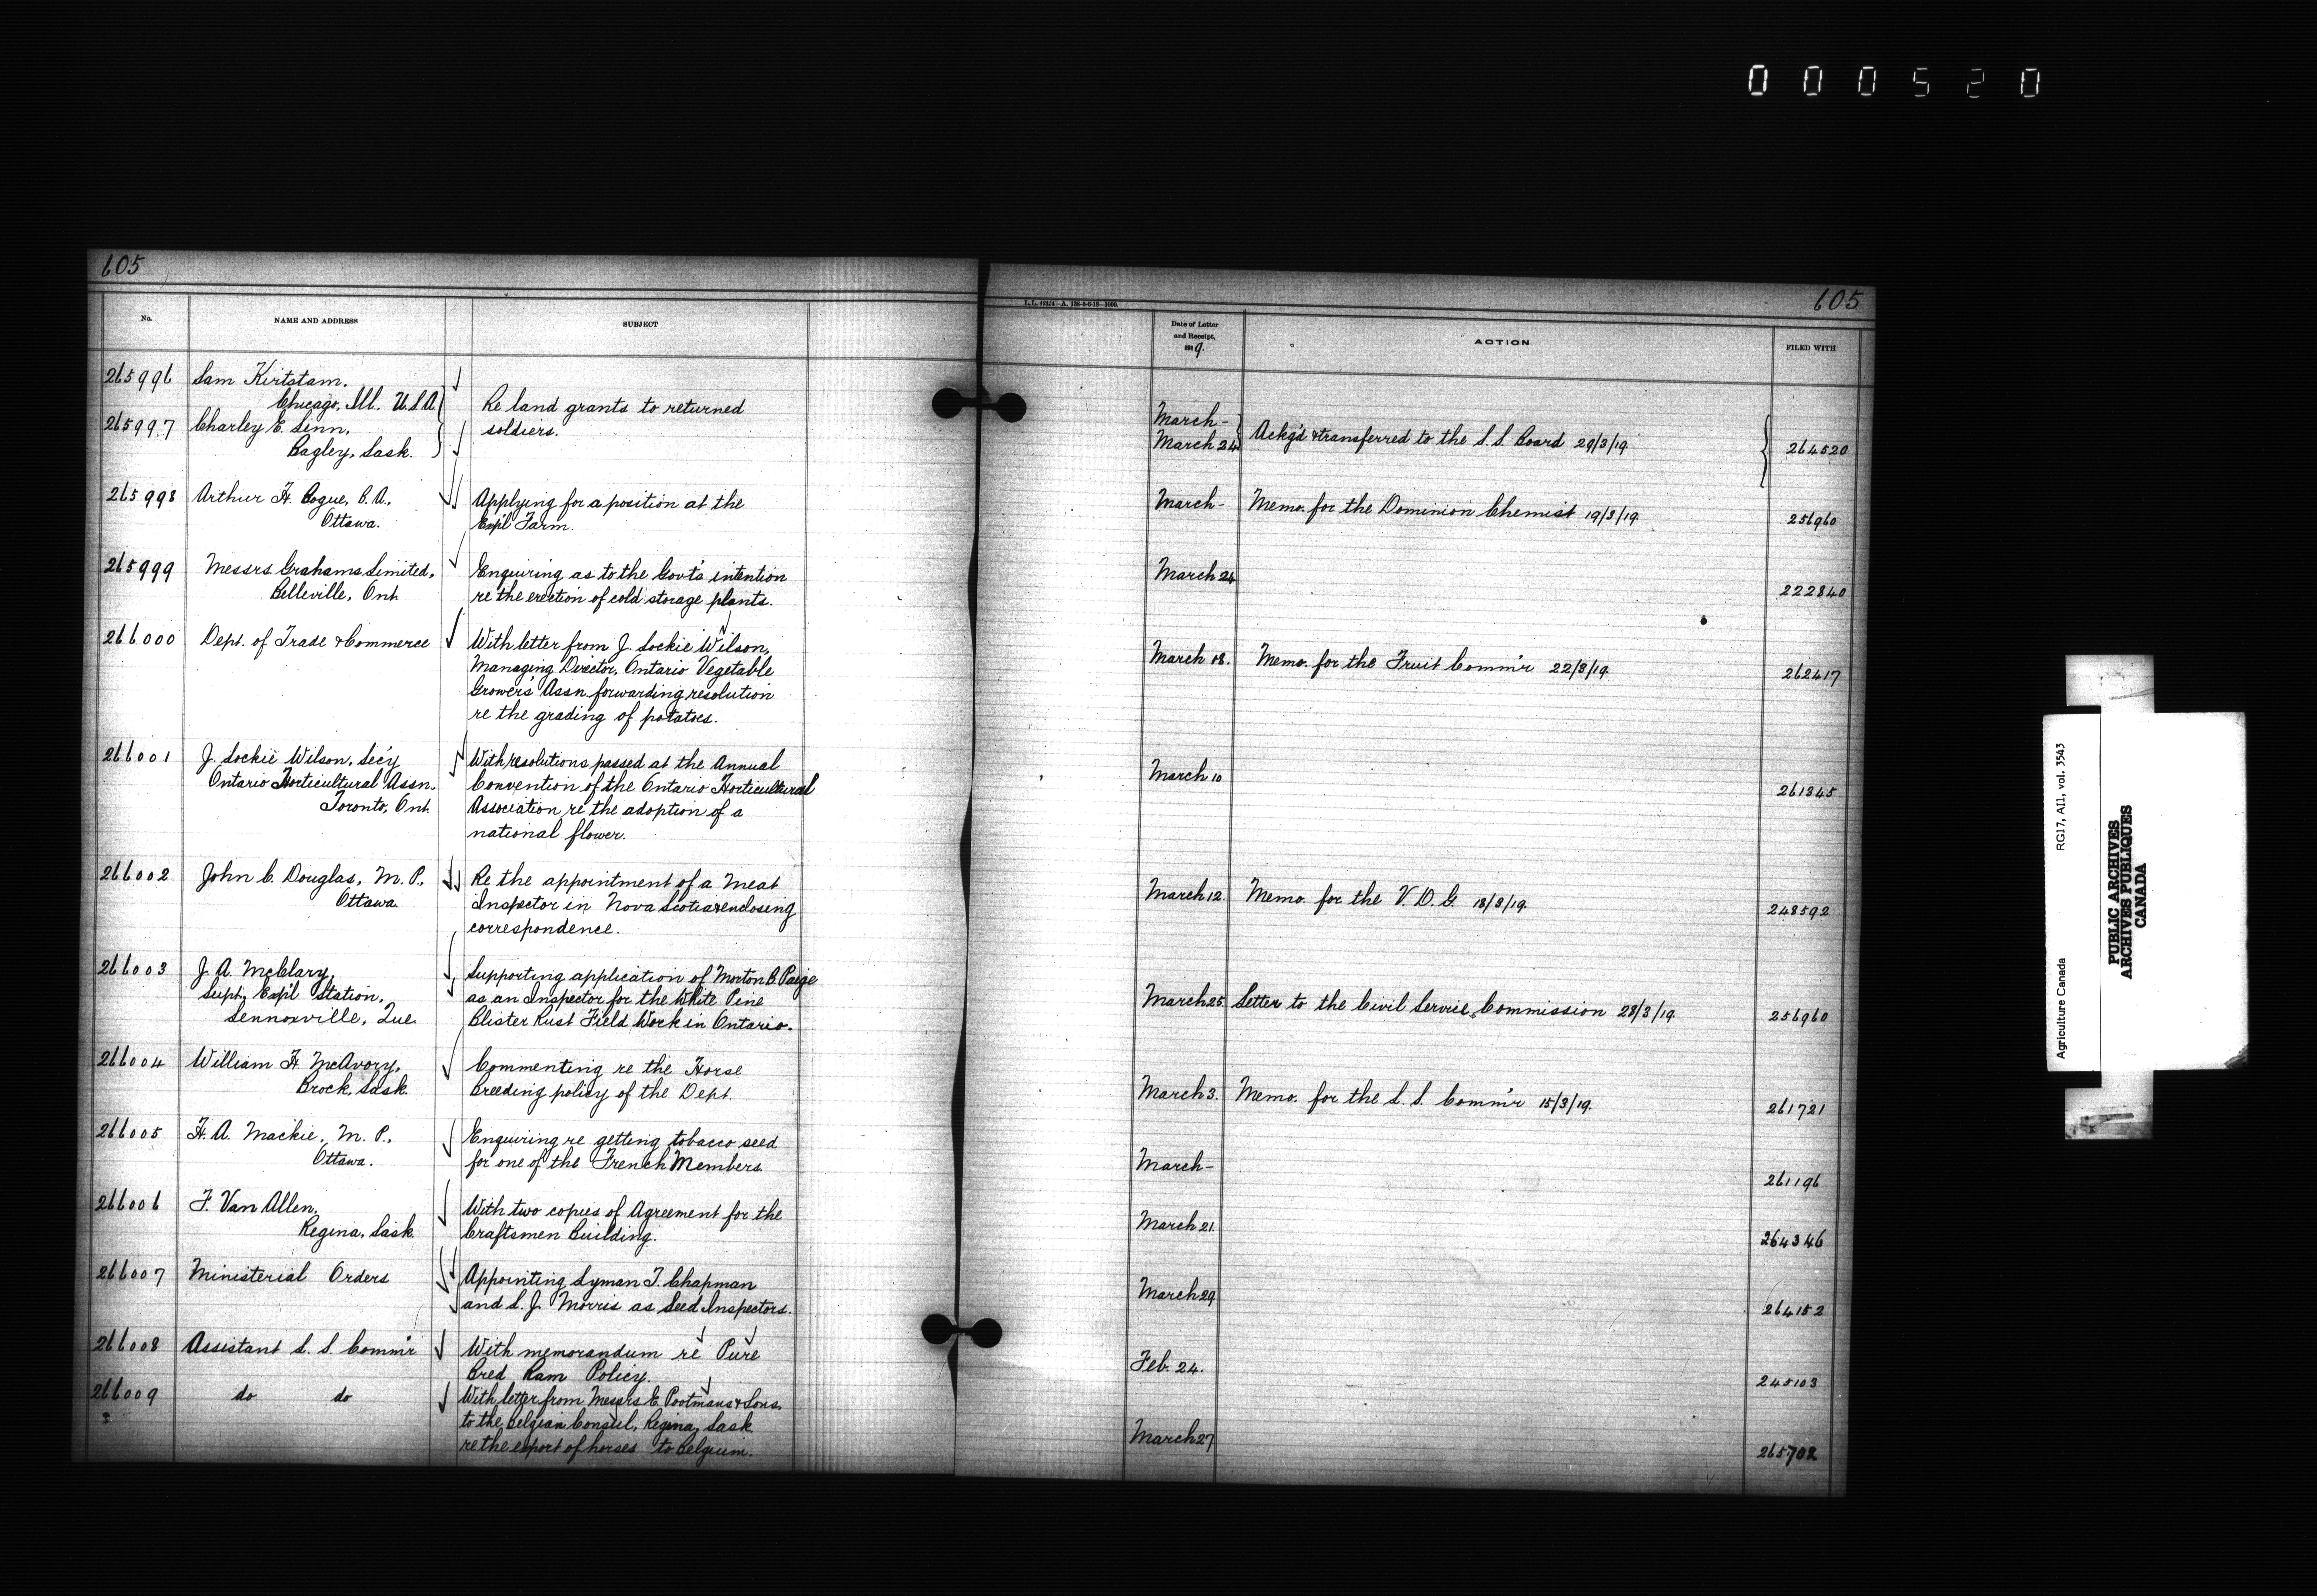 000520
605
No.
NAME AND ADDRESS
SUBJECT
265996
Sam Kirtstam,
Chicago, Ill. U.S.A.
265997
Charley E. Senn,
Bagley, Sask.
Re land grants to returned
soldiers.
265998
Arthur H. Bogue, B.A.,
Ottawa.
Applying for a position at the
Exp'l Farm.
265999
Messrs Grahams Limited,
Belleville, Ont.
Enquiring as to the Govt's intention
re the erection of cold storage plants.
266000
Dept. of Trade & Commerce
With letter from J. Lockie Wilson,
Managing Director, Ontario Vegetable
Growers' Assn forwarding resolution
re the grading of potatoes.
266001
J. Lockie Wilson, Sec'y
Ontario Horticultural Assn.
Toronto, Ont.
With resolutions passed at the Annual
Convention of the Ontario Horticultural
Association re the adoption of a
national flower.
266002
John C. Douglas, M.P.,
Ottawa.
Re the appointment of a Meat
Inspector in Nova Scotia enclosing
correspondence.
266003
J. A. McClary,
Supt. Exp'l Station,
Lennoxville, Que.
Supporting application of Morton B. Paige
as an Inspector for the White Pine
Blister Rust Field Work in Ontario.
266004
William H. McAvory,
Brock, Sask.
Commenting re the Horse
Breeding policy of the Dept.
266005
H. A. Mackie, M.P.,
Ottawa.
Enquiring re getting tobacco seed
for one of the French Members
266006
F. Van Allen,
Regina, Sask.
With two copies of Agreement for the
Craftsmen Building.
266007
Ministerial Orders
Appointing Lyman T. Chapman
and L. J. Morris as Seed Inspectors.
266008
Assistant L. S. Comm'r
With memorandum re Pure
Bred Ram Policy.
266009
do do
With letter from Messrs E. Pootmans & Sons,
to the Belgian Consul, Regina, Sask.
re the export of horses to Belgium.
L.L. 42454-A. 138-5-6-18-1000.
605
Date of Letter
and Receipt,
1919.
ACTION
FILED WITH
March -
March 24
Ackg'd & transferred to the S. S. Board 29/3/19.
264520
March -
Memo. for the Dominion Chemist 19/3/19.
256960
March 24
222840
March 18.
Memo. for the Fruit Comm'r 22/3/19.
262417
March 10
261345
March 12.
Memo. for the V. D. G. 18/3/19.
248592
March 25.
Letter to the Civil Service Commission 28/3/19.
256960
March 3.
Memo. for the L. S. Comm'r 15/3/19.
261721
March -
261196
March 21.
264346
March 29
264152
Feb. 24.
245103
March 27
265702
Agriculture Canada
RG17, A11, vol. 3543
PUBLIC ARCHIVES
ARCHIVES PUBLIQUES
CANADA